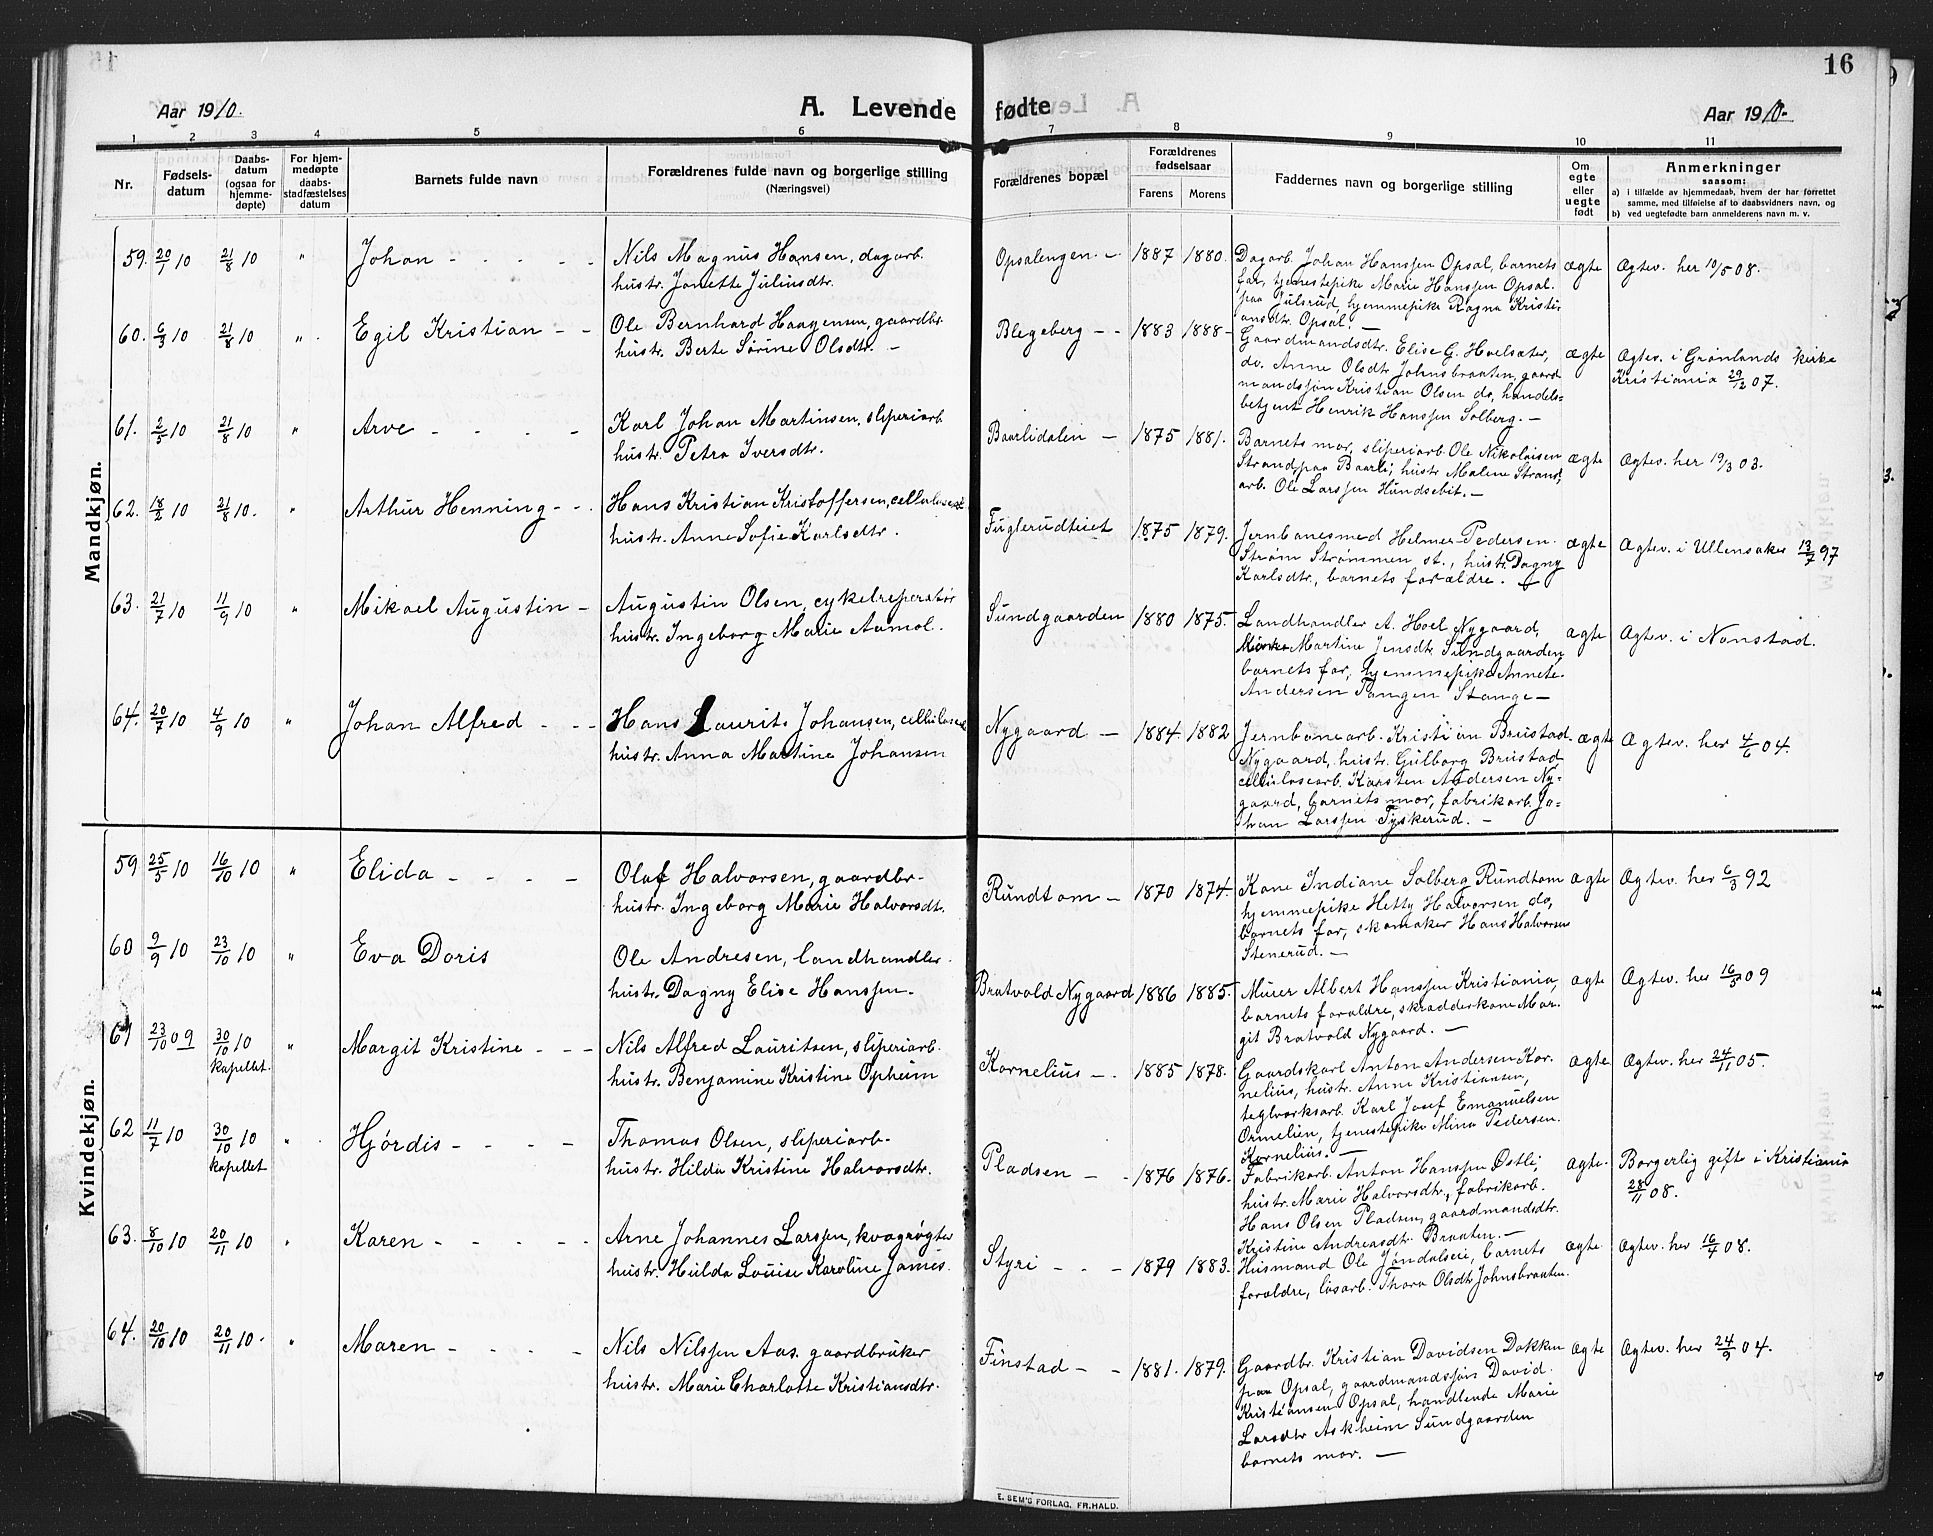 16
Aar 1910.
A. Levende fødte
Aar 1910.
1 2 3 4 5 6 7 8 9 10 11
Nr.
Fødsels-
datum
Daabs-
datum
(ogsaa for
hjemme-
døpte)
For hjem-
medøpte
daabs-
stadfæstelses
datum
Barnets fulde navn
Forældrenes fulde navn og borgerlige stilling
(Næringsvei)
Forældrenes bopæl
Forældrenes
fødselsaar
Farens Morens
Faddernes navn og borgerlige stilling
Om
egte
eller
uegte
født
Anmerkninger
saasom:
a) i tilfælde av hjemmedaab, hvem der har forrettet
samme, med tilføielse af to daabsvidners navn, og
b) ved uegtefødte barn anmelderens navn m. v.
Mandkjøn.
59. 20/1 10 21/8 10 " Johan - - - -
Nils Magnus Hansen, dagarb.
hustr. Janette Juliusdtr.
Opsalengen - 1887 1880.
Dagarb. Johan Hanssen Opsal, barnets
far, tjenestepike Marie Hanssen Opsal
paa Julsrud, hjemmepike Ragna Kristi-
ansdtr. Opsal. -
ægte Ægtev. her 19/5 08.
60. 6/3 10 21/8 10 " Egil Kristian - -
Ole Bernhard Haagensen, gaardbr.
hustr. Berte Sørine Olsdtr. -
Blegeberg - - 1883 1888 -
Gaardmandsdtr. Elise G. Hoelsæter,
do. Anne Olsdtr Johnsbraaten, gaard
mandssøn Kristian Olsen do, handels-
betjent Henrik Hanssen Solberg. -
ægte Ægtev. i Grønlands kirke
Kristiania 29/12 07.
61. 2/5 10 21/8 10 " Arve - - - -
Karl Johan Martinsen, sliperiarb
hustr. Petra Iversdtr.
Baarlidalen - 1875 1881.
Barnets mor, sliperiarb. Ole Nikolaisen
Strand paa Baarli, hustr. Malene Strand,
arb. Ole Larssen Hundsebit. -
ægte Ægtev. her 19/3 03.
62. 18/2 10 21/8 10. " Arthur Henning - -
Hans Kristian Kristoffersen, cellulosearb
hustr. Anne Sofie Karlsdtr.
Fuglerudteiet 1875 1879.
Jernbanesmed Helmer Pedersen
Strøm Strømmen st., hustr. Dagny
Karlsdtr., barnets forældre. -
ægte Ægtev. i Ullensaker 13/7 97
63. 21/7 10 11/9 10 " Mikael Augustin -
Augustin Olsen, cykelreperatør
hustr. Ingeborg Marie Aamol.
Sundgaarden 1880 1875.
Landhandler A. Hoel Nygaard,
Martine Jensdtr Sundgaarden
barnets far, hjemmepike Annete
Andersen Tangen Stange -
ægte Ægtev. i Nanstad.
64. 20/7 10 4/9 10 " Johan Alfred - - -
Hans Laurits Johansen, cellulosearb
hustr. Anna Martine Johansen
Nygaard - 1884. 1882
Jernbanearb. Kristian Brustad
Nygaard, hustr. Gulborg Brustad
cellulosearb. Karsten Andersen Ny-
gaard, barnets mor, fabrikarb. Jo-
han Larssen Tyskerud. -
ægte Ægtev. her 4/6 04.
Kvindekjøn.
59 25/5 10 16/10 10 " Elida - - - -
Olaf Halvorsen, gaardbr.
hustr. Ingeborg Marie Halvorsdt.
Rundtom - 1870 1874.
Kone Indiane Solberg Rundtom
hjemmepike Hetty Halvorsen do,
barnets far, skomaker Hans Halvorsen
Stenerud. -
ægte Ægtev. her 6/3 92
60 9/9 10 23/10 10 " Eva Doris
Ole Andresen, landhandler.
hustr. Dagny Elise Hanssen.
Bratvold Nygaard 1886 1885.
Murer Albert Hanssen Kristiania,
barnets forældre, skrædderkone Mar-
git Bratvold Nygaard. -
ægte Ægtev. her 16/5 09
61 23/10 09 30/10 10 " Margit Kristine - - -
kapellet.
Nils Alfred Lauritsen, sliperiarb.
hustr. Benjamine Kristine Opheim
Kornelius - . 1885 1878.
Gaardskarl Anton Andersen Kor-
nelius, hustr. Anne Kristiansen,
teglverksarb. Karl Josef Emanuelsen
Ormelien, tjenestepike Mina Pedersen
Kornelius. -
ægte Ægtev. her 24/11 05.
62 11/7 10 30/10 10 " Hjørdis - - - -
kapellet
Thomas Olsen, sliperiarb.
hustr. Hilda Kristine Halvorsdtr.
Pladsen - - 1876 1876.
Fabrikarb. Anton Hanssen Østli,
hustr. Marie Halvorsdtr., fabrikarb.
Hans Olsen Pladsen, gaardmandsdtr.
Kristine Andreasdtr. Braaten. -
ægte. Borgerlig gift i Kristiania
28/11 08.
63. 8/10 10 20/11 10 " Karen - - - - -
Arne Johannes Larssen, kvægrøgter
hustr. Hulda Louise Karoline James.
Styri - - - 1879 1883.
Husmand Ole Jøndalseie, barnets
forældre, løsarb. Thora Olsdtr Johnsbraaten.
ægte Ægtev. her 16/4 08.
64. 20/10 10 20/11 10. " Maren - - - -
Nils Nilssen Aas. gaardbruker
hustr. Marie Charlotte Kristiansdtr.
Finstad - - 1881. 1879.
Gaardbr. Kristian Davidsen Dakken
paa Opsal, gaardmandssøn David
Kristiansen Opsal, handlende Marie
Larsdtr Askheim Sundgaarden
barnets mor. -
ægte Ægtev. her 24/9 04.
E. SEM'S FORLAG, FR.HALD.